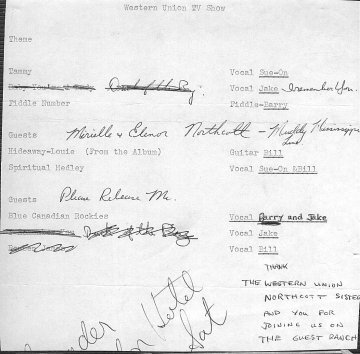 Western Union TV Show
Theme
Tammy Vocal Sue-On
Dock of the Bay. Vocal Jake I remember You.
Fiddle Number Fiddle-Barry
Guests Merielle & Elenor Northcott - Muddy Mississippi Line
Hideaway-Louie (From the Album) Guitar Bill
Spiritual Medley Vocal Sue-On &Bill
Guests Please Release Me.
Blue Canadian Rockies Vocal Barry and Jake
Dock of the Bay Vocal Jake
Vocal Bill
THANK
THE WESTERN UNION
NORTHCOTT SISTERS
AND YOU FOR
JOINING US ON
THE GUEST RANCH
Sat